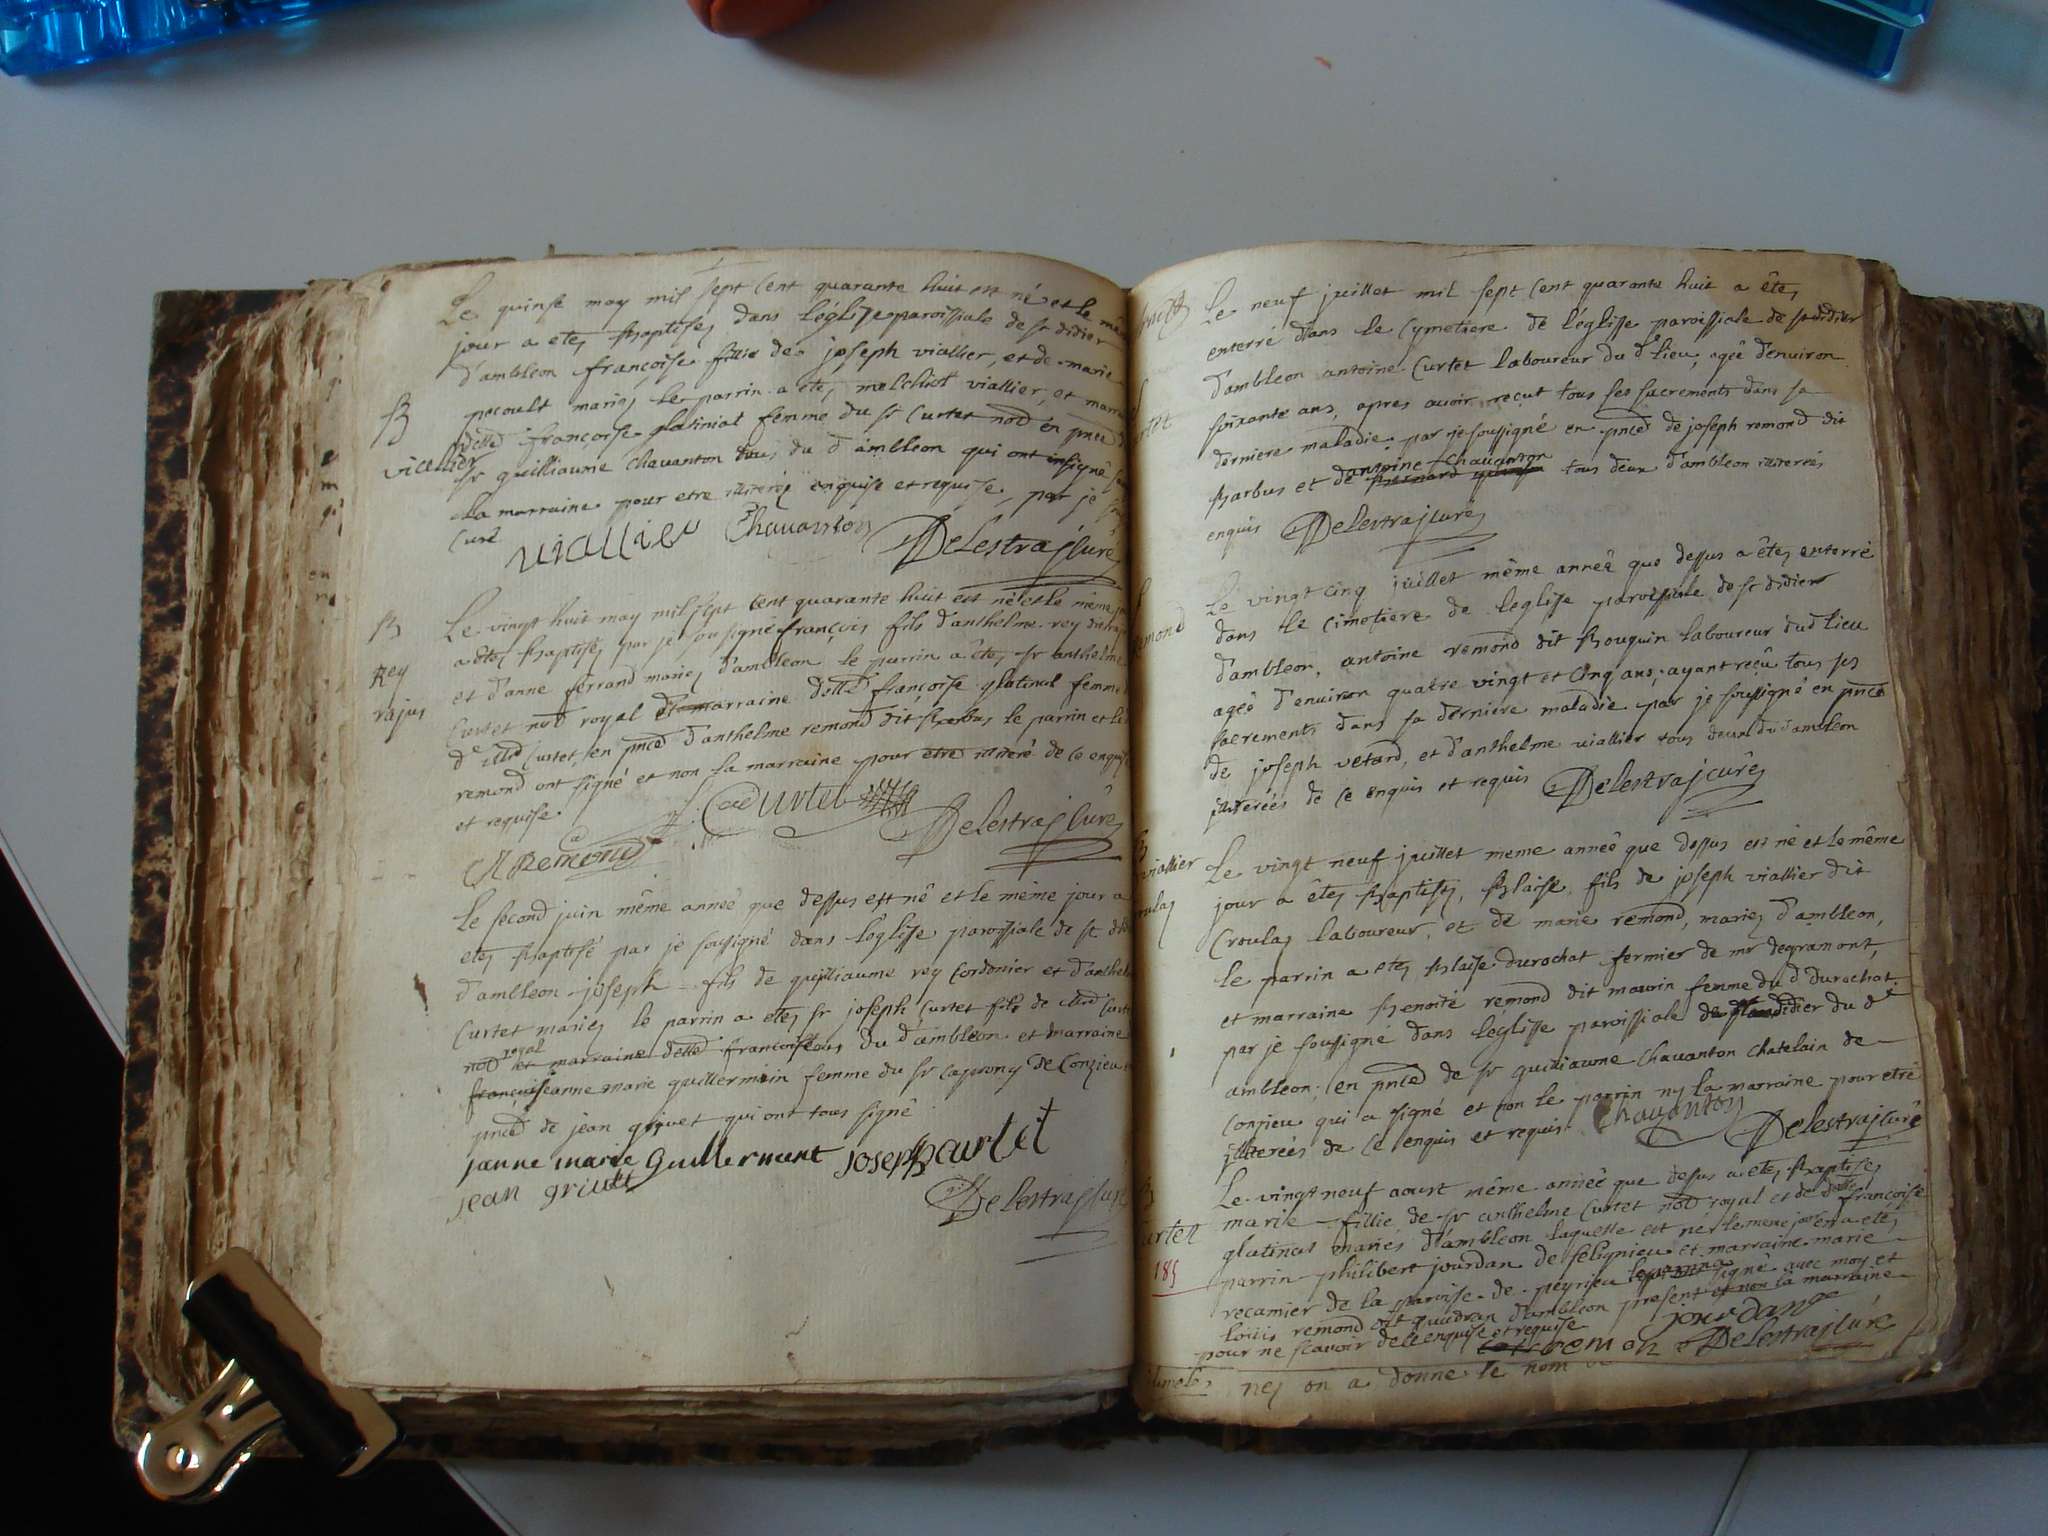 Le quinse may mil sept cent quarante huit est né et le mê
jour a etez Baptisez dans léglize paroissiale de st didier
d'ambleon françoise fillie de joseph viallier, et de marie
pecoult mariez le parrin a etez melchiot viallier, et marr
B
delle françoise glatiniat femme du sr Curtet nore en pnce d
viallier
sr guilliaume Chavanton tous du d ambleon qui ont signé
la marraine pour etre illiterée enquise et requise, par je
Curé
viallier Chavanton Delestraz Curé
Le vingt huit may mil sept cent quarante huit est né et le même
B
a etez Baptisez par je sousigné françois fils d'anthelme rey dit
Rey
et d'anne ferrand mariez d'ambleon le parrin a êtez sr anthelme
rajus
Curtet nore royal et marraine delle françoise glatinat femme
d Curtet, en pnce d'anthelme remond dit Barbus le parrin et le
remond ont signé et non la marraine pour etre illiteré de ce enqui
et requise
Curtet Delestraz Curé
A Remond
Le second juin même annéé que dessus est né et le même jour a
etez Baptisé par je sousigné dans l'eglisse paroissiale de st did
d'ambleon joseph fils de guilliaume rey Cordonier et d'anthel
Curtet mariez le parrin a etez sr joseph Curtet fils de Curt
royal
nore et marraine delle françoise tous du d'ambleon et marraine
françoise anne marie guillermin femme du sr Caprony de Conzieu
pnce de jean grivet qui ont tous signé
janne marie Guillermint joseph curtet
jean griuet
Delestraz Curé
Le neuf juillet mil sept cent quarante huit a êtez
enterré dans le Cymetiere de l'églisse paroissiale de st didier
d'ambleon antoine Curtet laboureur du d lieu, agéé d'environ
soixante ans, apres avoir reçut tous ses sacrements dans sa
derniere maladie par je soussigné en pnce de joseph remond dit
antoine Chavanton
Barbus et de tous deux d'ambleon illiterés
enquis Delestraz Curé
Le vingt cinq juillet même annéé que dessus a êtez enterré
remond
dans le cimetiere de leglisse paroissiale de st didier
d'ambleon, antoine remond dit Bouquin laboureur dud lieu
agéé d'environ quatre vingt et cinq ans, ayant reçû tous ses
sacrements dans sa derniere maladie par je soussigné en pnce
de joseph vetard, et d'anthelme viallier tous deux du d'ambleon
illiterées de ce enquis et requis Delestraz curé
B
viallier
Le vingt neuf juillet meme annéé que dessus est né et le même
jour a êtez Baptisez, Blaise, fils de joseph viallier dit
Croulaz laboureur, et de marie remond, mariez d'ambleon,
le parrin a etez Blaise durochat fermier de mr degramont,
et marraine Benoité remond dit maurin femme du d Durochat
par je soussigné dans l'églisse paroissiale de st didier du d
ambleon, en pnce de sr guilliaume Chavanton Chatelain de
Conzieu qui a signé et non le parrin ny la marraine pour etre
illiterées de ce enquis et requis Chavanton
Delestraz Curé
B
Le vingt neuf aoust même annéé que dessus a etez Baptisez
Curtet
marie fillie de sr anthelme Curtet nore royal et de delle françoise
glatinat mariez d'ambleon laquelle est néé le meme jour en a etéz
185
parrin philibert jourdan de selignieu et marraine marie
recamier de la paroise de peyrieu signé avec moy et
louis remond dit guidran d'ambleon present et non la marraine
pour ne scavoir de ce enquise et requise jourdan
remon Delestraz Curé
néz on a donné le nom